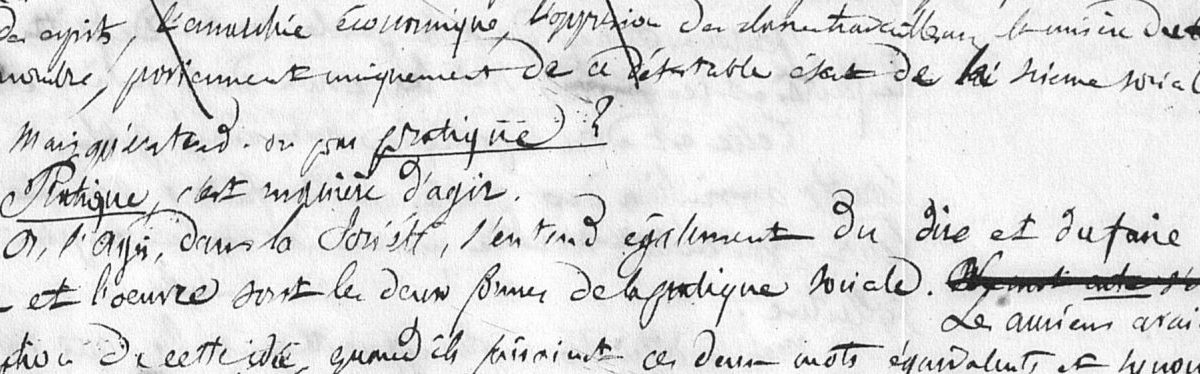 des esprits, l'anarchie économique, l'oppression des
nombre, proviennent uniquement de ce détestable état de la science social
Mais qu'entend-on par pratique ?
Pratique, c'est manière d'agir.
Or, l'agir, dans la Société, s'entend également du dire et du faire
et l'oeuvre sont les deux formes de la pratique sociale.
Les anciens avai
de cette idée, quand ils faisaient ces deux mots équivalents et synon